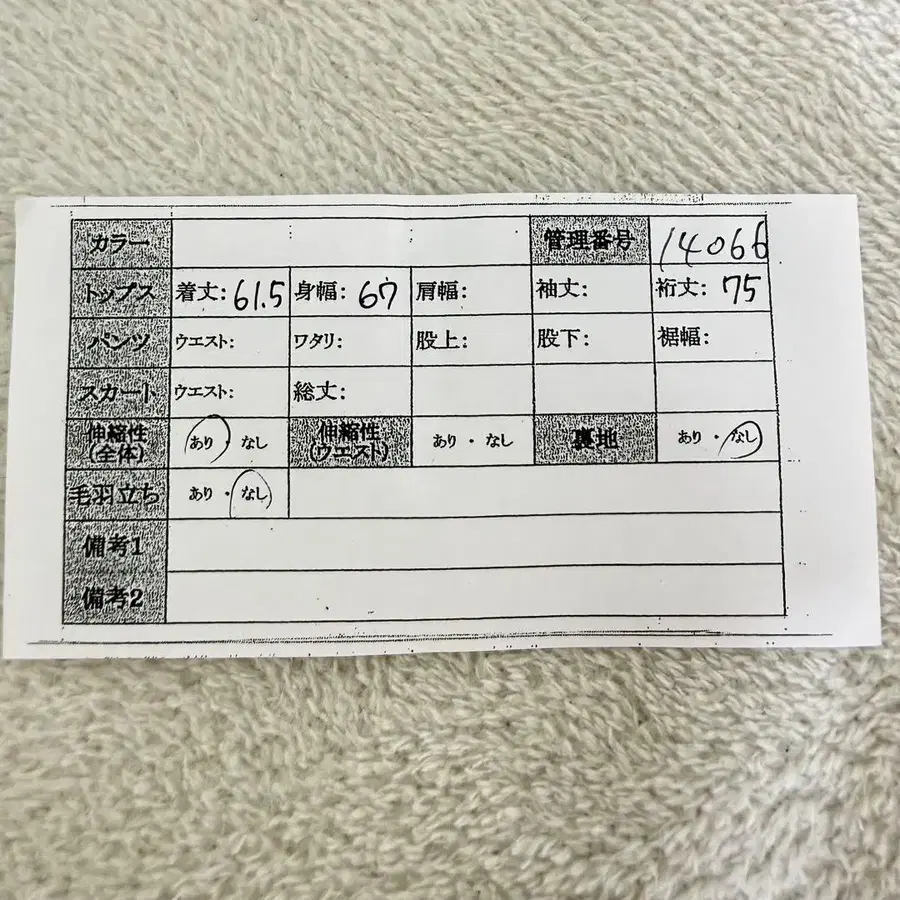 カラー 管理番号 14066
トップス 着丈: 61.5 身幅: 67 肩幅: 袖丈: 裄丈: 75
パンツ ウエスト: ワタリ: 股上: 股下: 裾幅:
スカート ウエスト: 総丈:
伸縮性(全体) あり・なし 伸縮性(ウエスト) あり・なし 裏地 あり・なし
毛羽立ち あり・なし
備考1
備考2